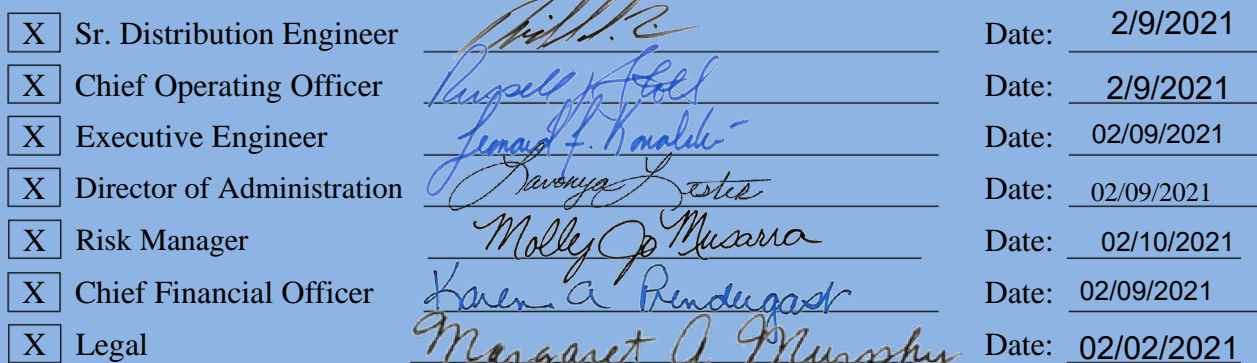 X Sr. Distribution Engineer Date: 2/9/2021
X Chief Operating Officer Russell J Stoll Date: 2/9/2021
X Executive Engineer Leonard F. Kowalski Date: 02/09/2021
X Director of Administration Lavonya Lester Date: 02/09/2021
X Risk Manager Molly Jo Musarra Date: 02/10/2021
X Chief Financial Officer Karen A Prendergast Date: 02/09/2021
X Legal Margaret A. Murphy Date: 02/02/2021